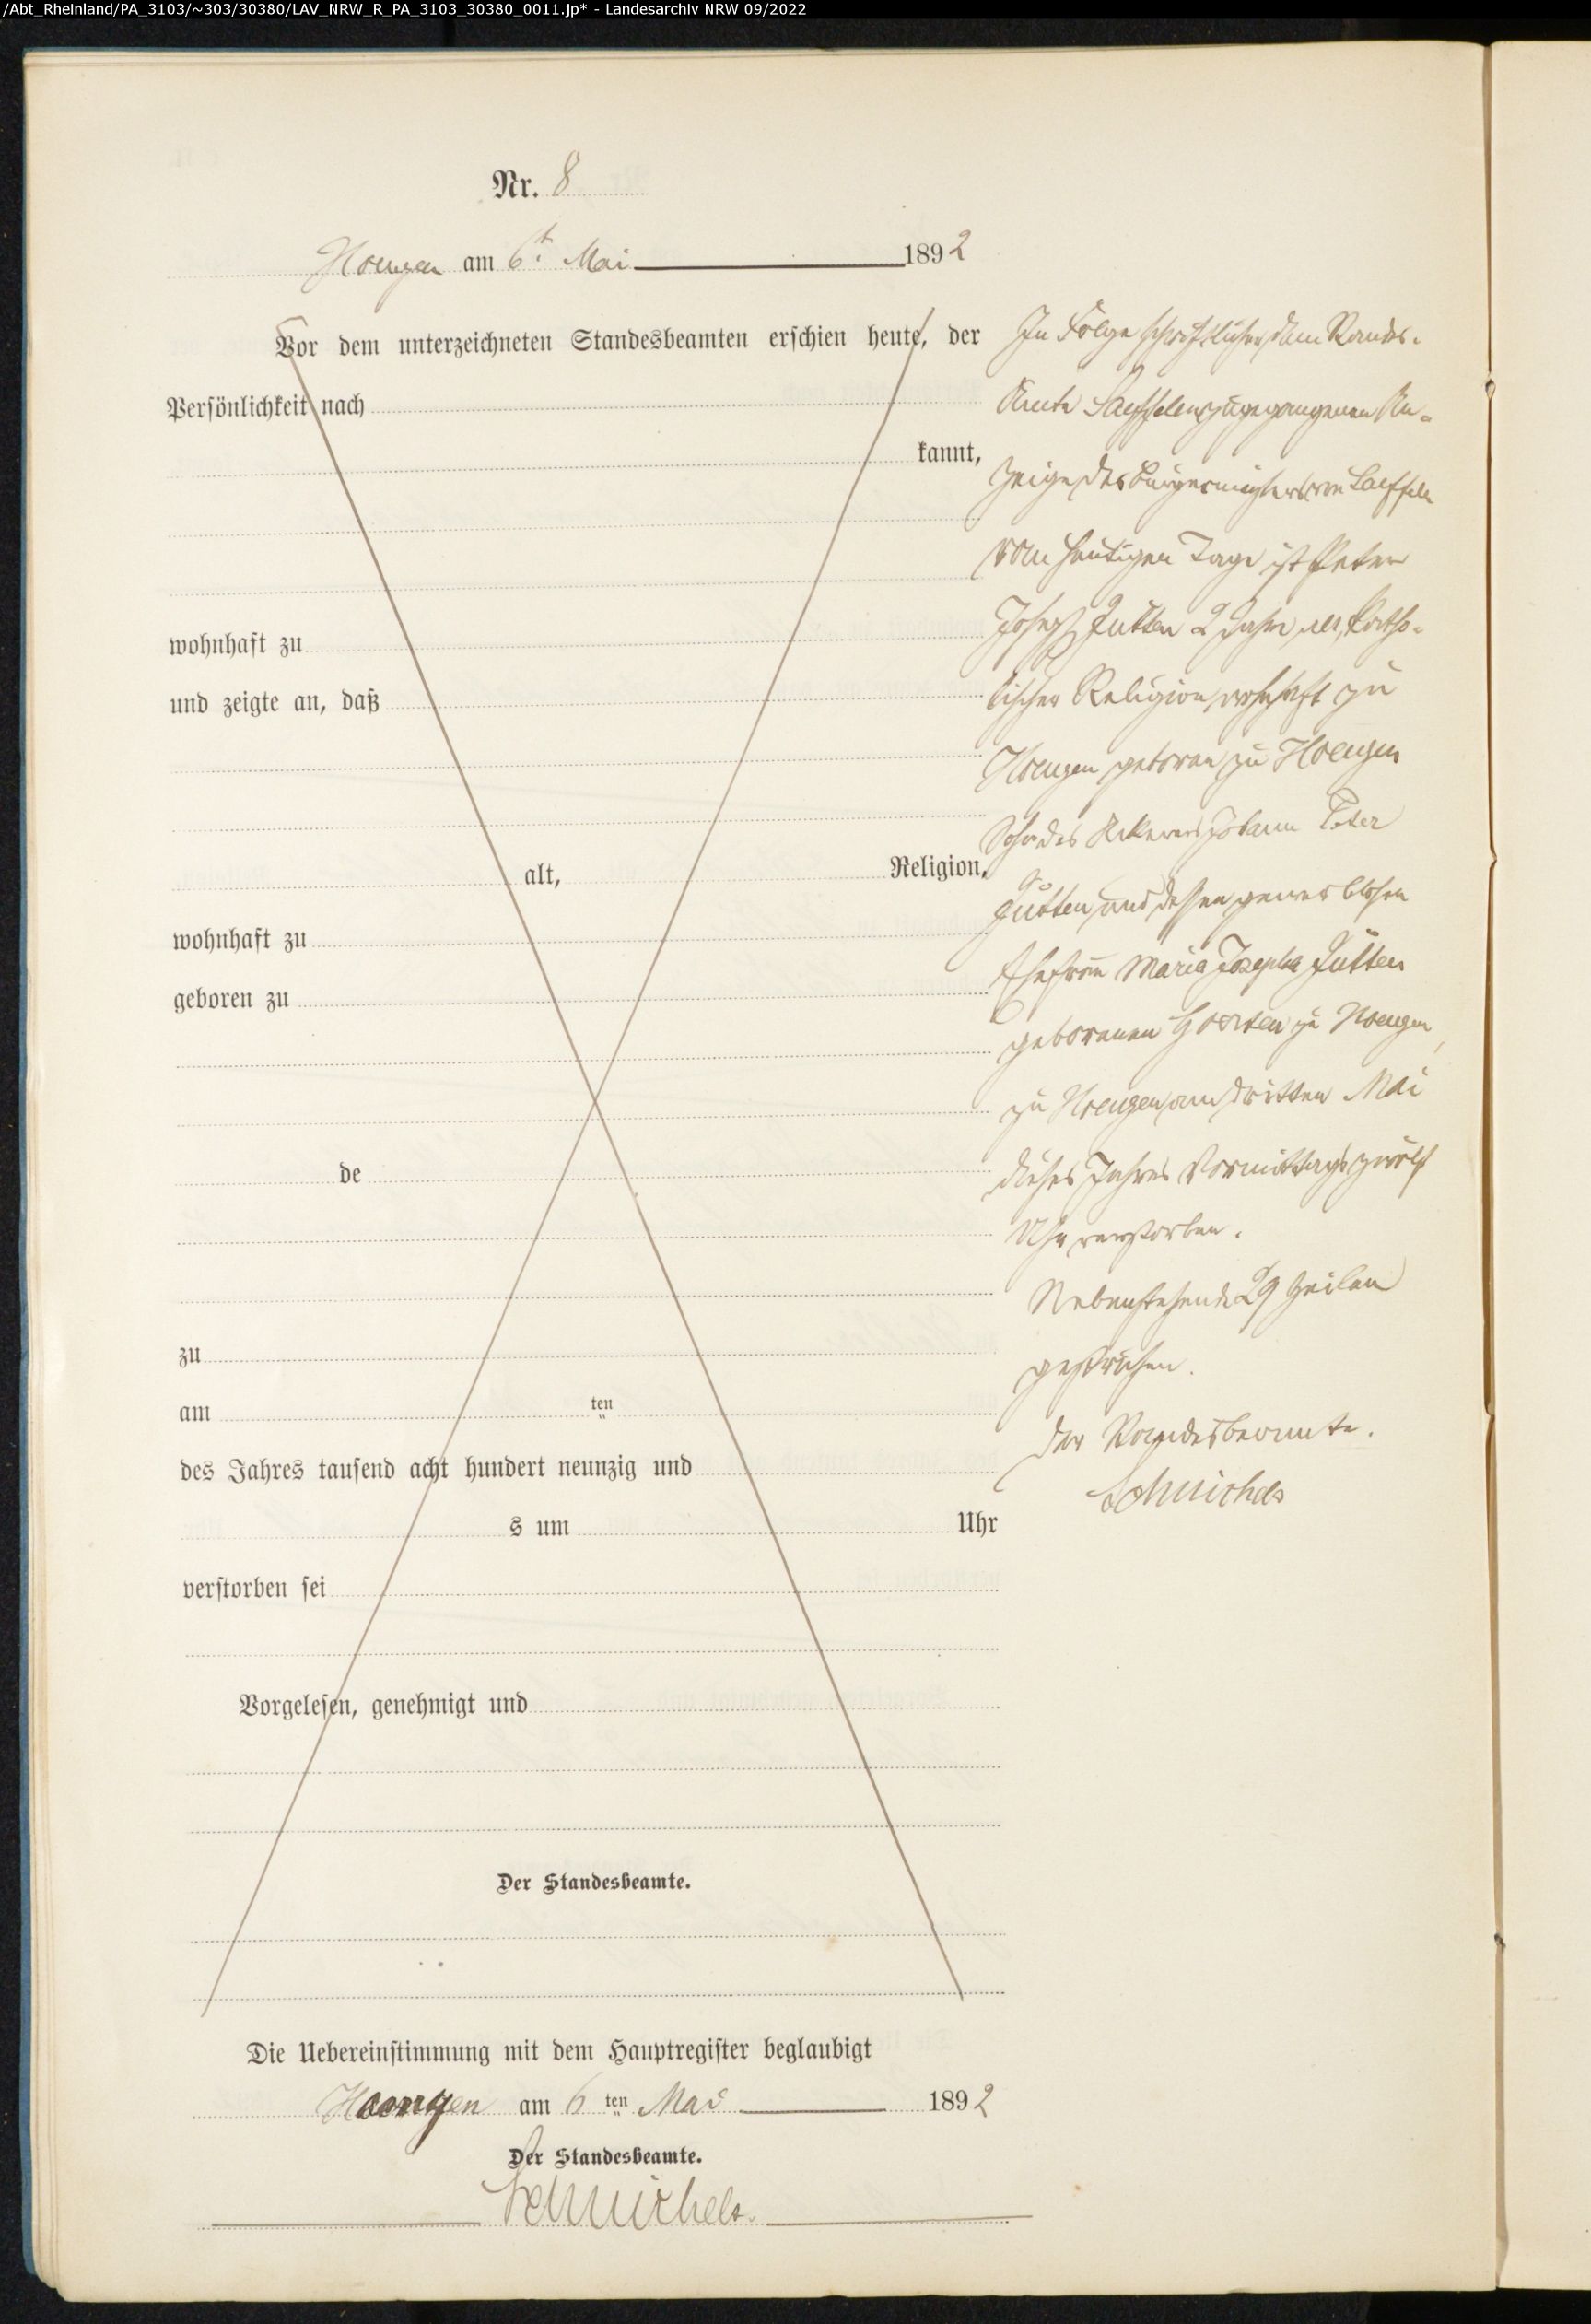 /Abt_Rheinland/PA_3103/~303/30380/LAV_NRW_R_PA_3103_30380_0011.jp* - Landesarchiv NRW 09/2022
Nr. 8
Hoengen am 6t. Mai 1892
Vor dem unterzeichneten Standesbeamten erschien heute, der
Persönlichkeit nach
kannt,
wohnhaft zu
und zeigte an, daß
alt, Religion,
wohnhaft zu
geboren zu
de
zu
am ten
des Jahres tausend acht hundert neunzig und
s um Uhr
verstorben sei
Vorgelesen, genehmigt und
Der Standesbeamte.
In Folge schriftlicher dem Standes-
Amte Saeffelen zugegangenen An-
zeige des Bürgermeisters von Saeffelen
vom heutigen Tage ist Peter
Joseph Jütten 2 Jahre alt, katho-
lischer Religion wohnhaft zu
Hoengen geboren zu Hoengen
Sohn des Ackerers Johann Peter
Jütten und dessen gewerblosen
Ehefrau Maria Josepha Jütten
geborenen Goerten zu Hoengen,
zu Hoengen am dritten Mai
dieses Jahres Vormittags zwölf
Uhr verstorben.
Nebenstehende 29 Zeilen
gestrichen.
Der Standesbeamte.
Schmichels
Die Uebereinstimmung mit dem Hauptregister beglaubigt
Hoengen am 6 ten Mai 1892
Der Standesbeamte.
Schmichels.